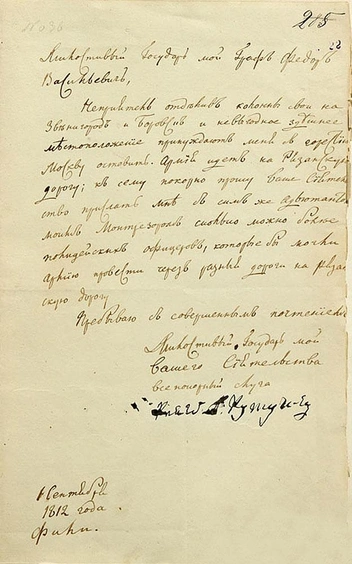 205
Милостивый Государь мой Графъ Федоръ
Васильевичъ,
Непріятель отделивъ колонны свои на
Звенигородъ и Боровскъ и невыгодное здешнее
местоположение принуждаютъ меня съ горестію
Москву оставить. Армія идетъ на Рязанскую
дорогу; къ сему покорно прошу Ваше Сіятель
ство прислать мне съ симъ же адъютантомъ
моимъ Монтрезоромъ сколько можно более
полицейскихъ офицеровъ, которые бы могли
армію провести чрезъ разныя дороги на Ряза
скую дорогу
Пребываю съ совершеннымъ почтеніемъ
Милостивый Государь мой
Вашего Сіятельства
всепокорный слуга
Князь Г. Кутузовъ
1812 года.
Фили.